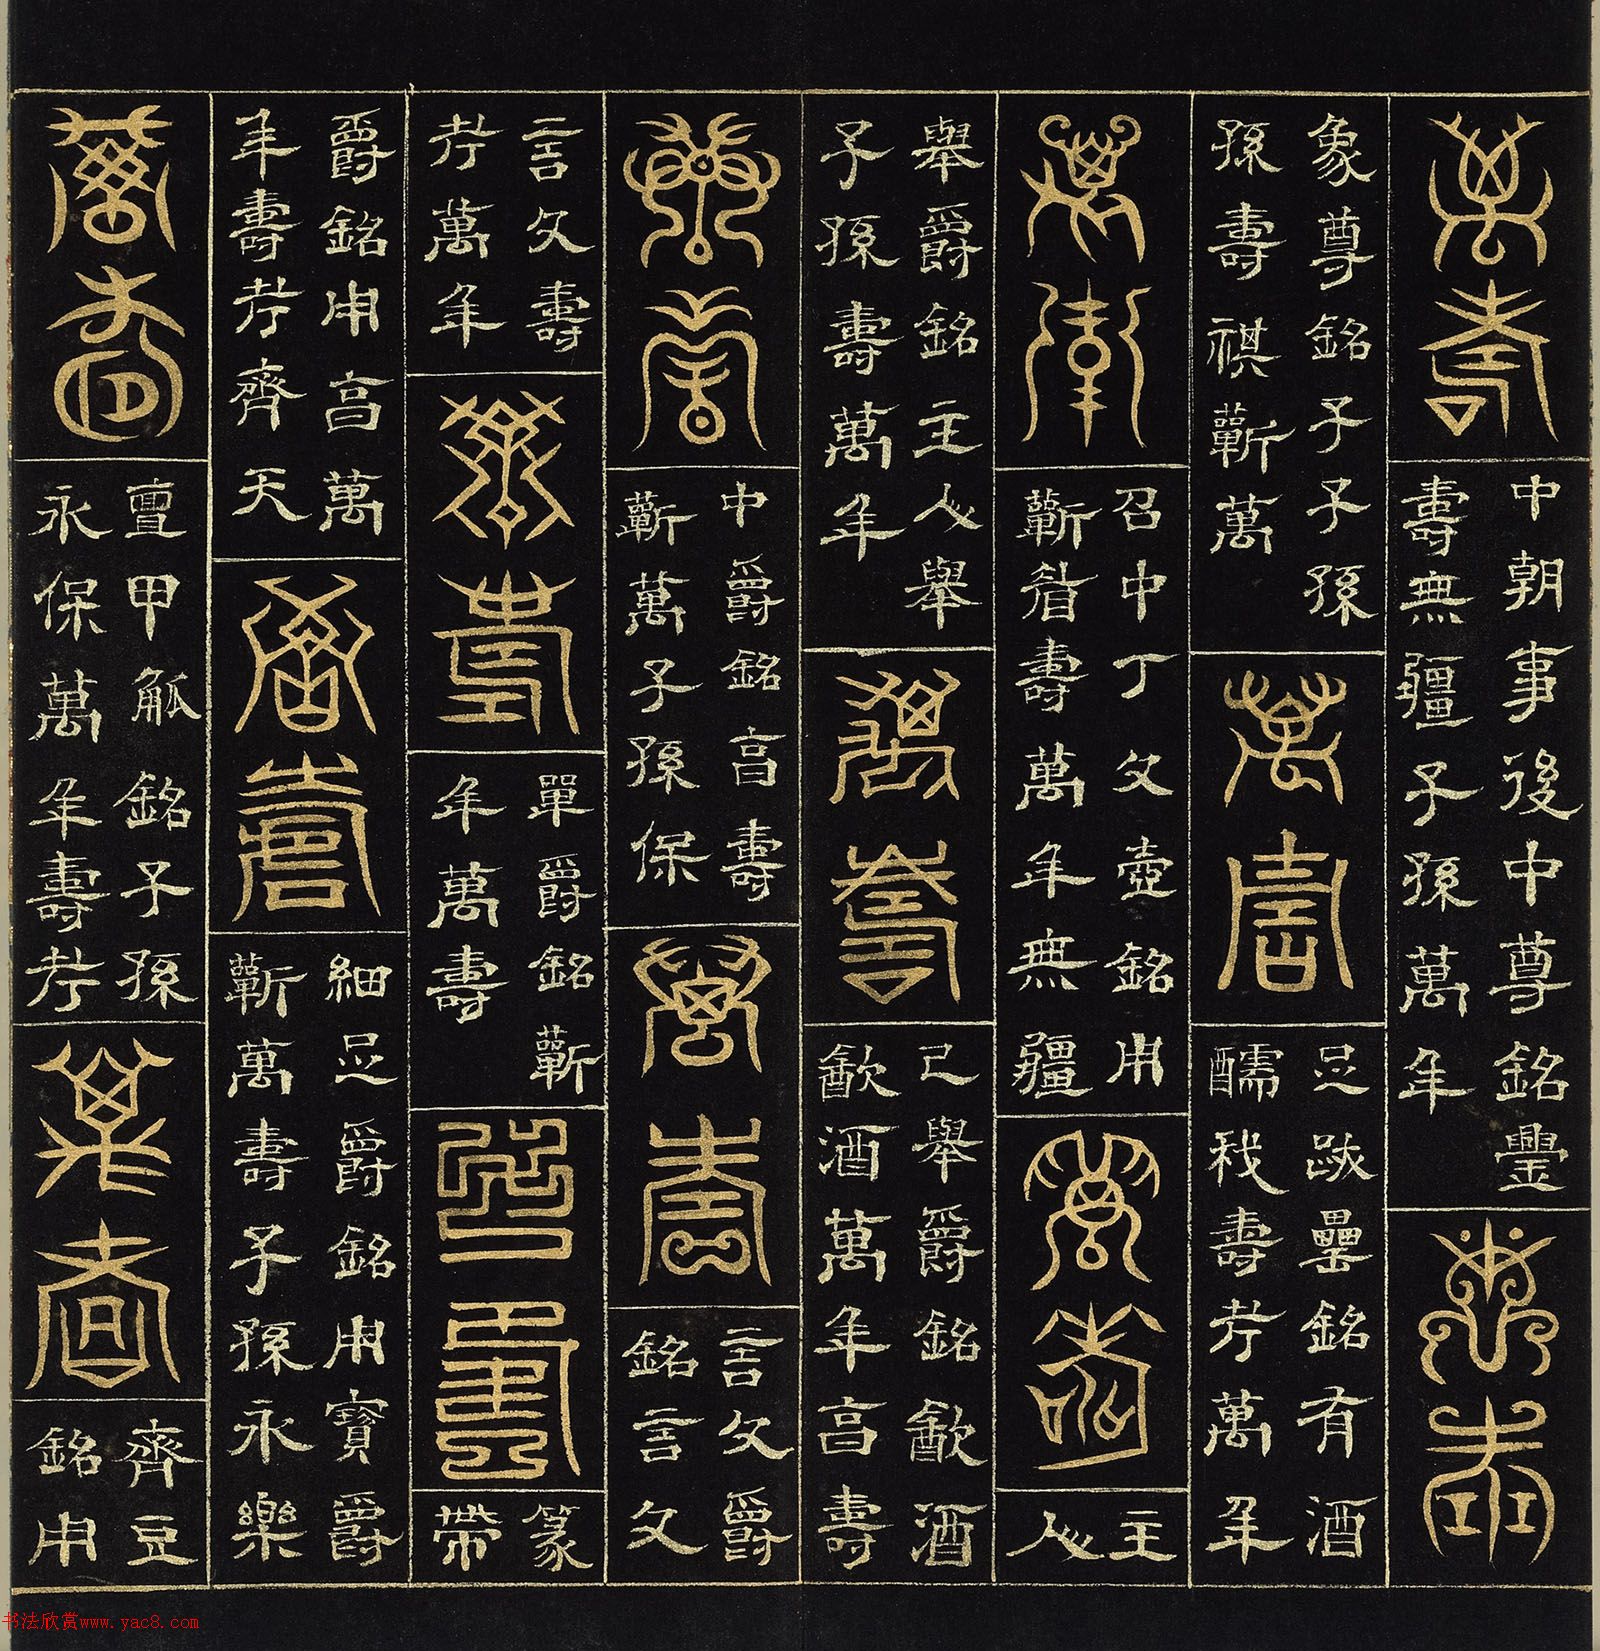 萬壽
中朝事後中尊銘舋
壽無疆子孫萬年
萬壽
象尊銘子子孫
孫壽祺蘄萬
萬壽
足跋罍銘有酒
醹我壽考萬年
萬壽
召中丁父壺銘用
蘄眉壽萬年無疆
萬壽
主
人
舉爵銘主人舉
子孫壽萬年
萬壽
己舉爵銘㱃酒
㱃酒萬年亯壽
萬壽
中爵銘亯壽
蘄萬子孫保
萬壽
言父爵
銘言父
言父壽
考萬年
萬壽
單爵銘蘄
年萬壽
萬壽
篆
帶
爵銘用亯萬
年壽考齊天
萬壽
細足爵銘用寶爵
蘄萬壽子孫永樂
萬壽
亶甲觚銘子孫
永保萬年壽考
萬壽
齊豆
銘用
书法欣赏www.yac8.com